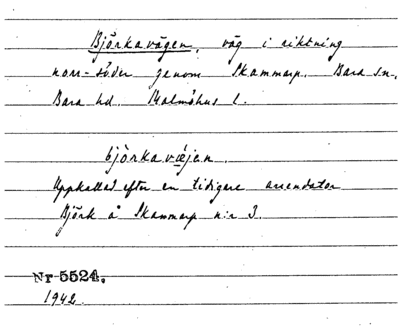 Björkavägen, väg i riktning
norr-söder genom Skammarp. Bara sn.
Bara hd. Malmöhus l.
björkavæjen.
Uppkallad efter en tidigare arrendator
Björk å Skammarp n:r 3.
Nr 5524.
1942.